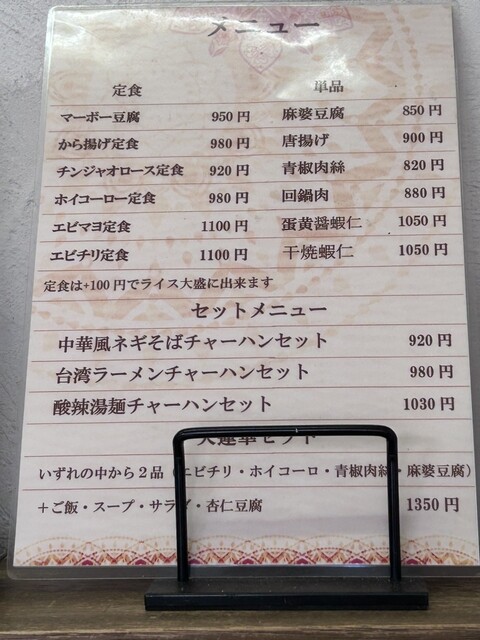 メニュー
定食 単品
マーボー豆腐 950円 麻婆豆腐 850円
から揚げ定食 980円 唐揚げ 900円
チンジャオロース定食 920円 青椒肉絲 820円
ホイコーロー定食 980円 回鍋肉 880円
エビマヨ定食 1100円 蛋黄醤蝦仁 1050円
エビチリ定食 1100円 干焼蝦仁 1050円
定食は+100円でライス大盛に出来ます
セットメニュー
中華風ネギそばチャーハンセット 920円
台湾ラーメンチャーハンセット 980円
酸辣湯麺チャーハンセット 1030円
大蓮華セット
いずれの中から2品（エビチリ・ホイコーロ・青椒肉絲・麻婆豆腐）
＋ご飯・スープ・サラダ・杏仁豆腐 1350円